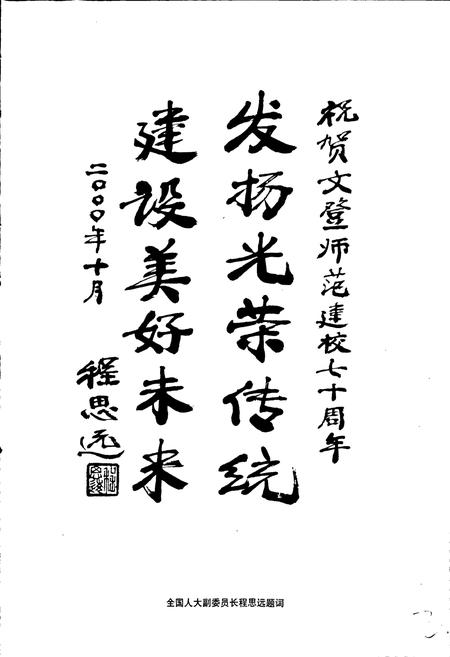 祝贺文登师范建校七十周年
发扬光荣传统
建设美好未来
二〇〇〇年十月
程思远
全国人大副委员长程思远题词